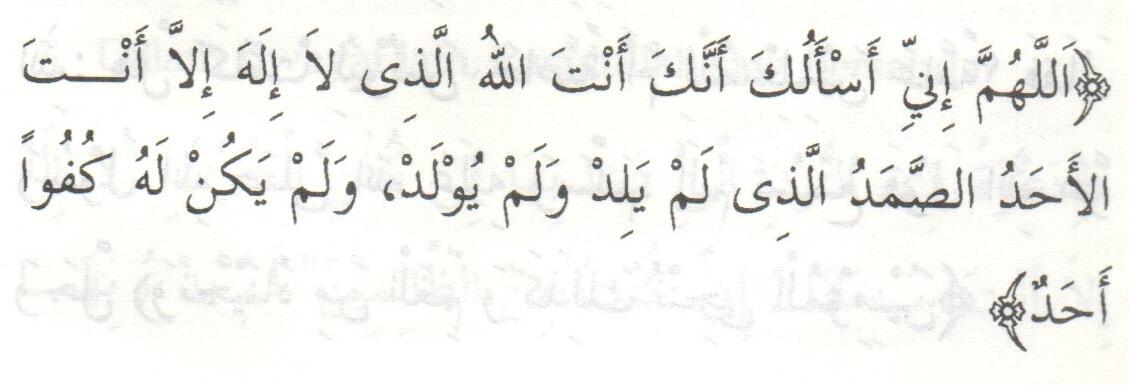 ﴿اَللَّهُمَّ إِنِّي أَسْأَلُكَ أَنَّكَ أَنْتَ اللهُ الَّذِى لاَ إِلَهَ إِلاَّ أَنْـــتَ
الأَحَدُ الصَّمَدُ الَّذِى لَمْ يَلِدْ وَلَمْ يُوْلَدْ، وَلَمْ يَكُنْ لَهُ كُفُواً
أَحَدٌ﴾